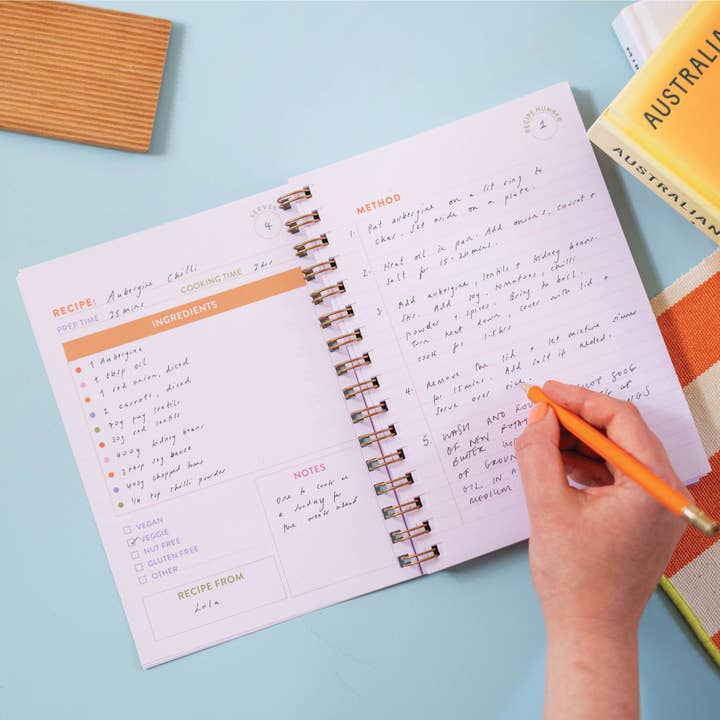 SERVES
4
RECIPE: Aubergine Chilli
PREP TIME 25 mins COOKING TIME 2hrs
INGREDIENTS
1 Aubergine
1 tbsp oil
1 red onion, diced
2 carrots, diced
70g puy lentils
30g red lentils
400g kidney beans
2 tbsp soy sauce
400g chopped toms
1/4 tsp chilli powder
VEGAN
VEGGIE
NUT FREE
GLUTEN FREE
OTHER
NOTES
One to cook on
a Sunday for
the week ahead
RECIPE FROM
Lula
RECIPE NUMBER
1
METHOD
1. Put aubergine on a lit ring to
char. Set aside on a plate.
2. Heat oil in pan. Add onions, carrot +
salt for 15-20mins.
3. Add aubergine, lentils + kidney beans.
Stir. Add soy, tomatoes, chilli
powder + spices. Bring to boil.
Turn heat down, cover with lid +
cook for 1.5hrs
4. Remove the lid + let mixture simmer
for 15mins. Add salt if needed.
Serve over rice
5. WASH AND 500G
OF NEW OF
BUTTER
OF GROUND
OIL IN A
MEDIUM
AUSTRALIAN
AUSTRALIAN